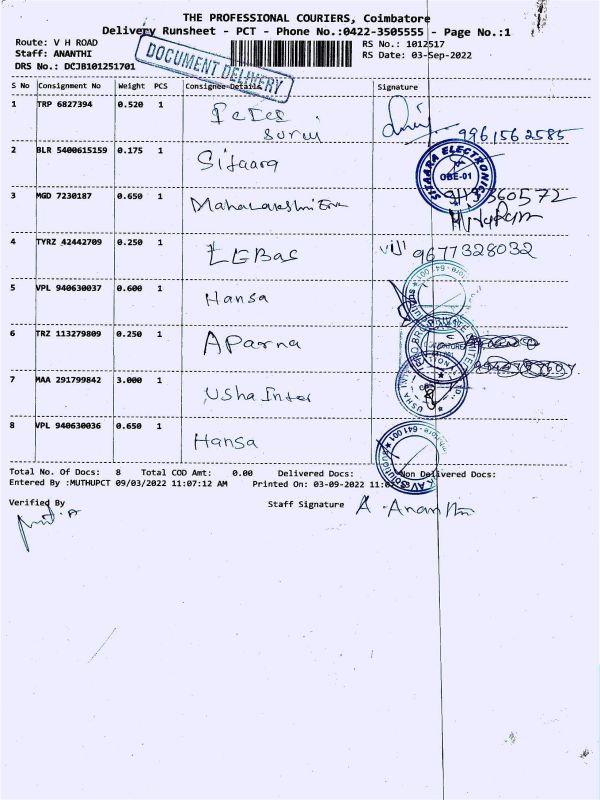 THE PROFESSIONAL COURIERS, Coimbatore
Delivery Runsheet - PCT - Phone No.:0422-3505555 - Page No.:1
Route: V H ROAD RS No.: 1012517
Staff: ANANTHI RS Date: 03-Sep-2022
DRS No.: DCJB101251701
DOCUMENT DELIVERY
S No Consignment No Weight PCS Consignee Details Signature
1 TRP 6827394 0.520 1 9961562585
2 BLR 5400615159 0.175 1 Sitaara SITAARA ELECTRONICS CBE-01
3 MGD 7230187 0.650 1 Mahalakshmi 9113360572
4 TYRZ 42442709 0.250 1 viji 9677328032
5 VPL 940630037 0.600 1 Hansa
6 TRZ 113279809 0.250 1 Aparna
7 MAA 291799842 3.000 1 Usha Inter
8 VPL 940630036 0.650 1 Hansa
Total No. Of Docs: 8 Total COD Amt: 0.00 Delivered Docs: Non Delivered Docs:
Entered By :MUTHUPCT 09/03/2022 11:07:12 AM Printed On: 03-09-2022
Verified By Staff Signature A. Ananthi